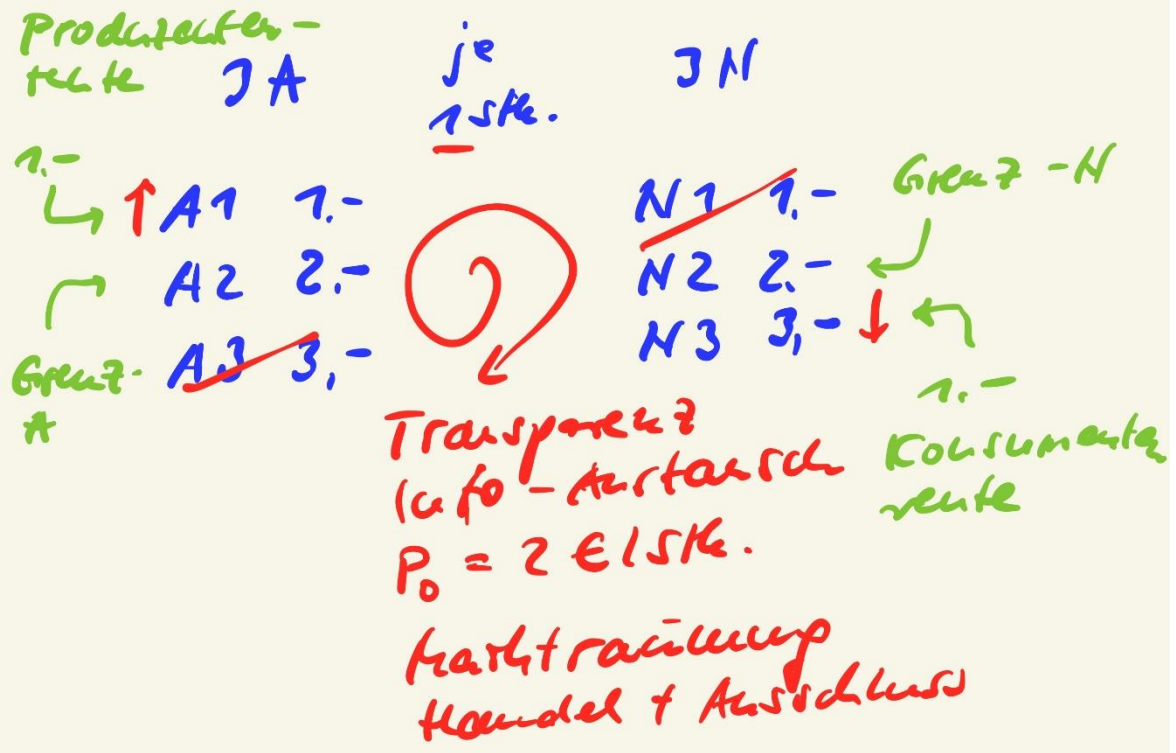 Produzenten-
rente
3A
je
1 Stk.
3N
1.-
A1 1.-
A2 2.-
A3 3,-
Grenz-
A
N1 1.-
N2 2.-
N3 3,-
Grenz-N
1.-
Konsumenten
rente
Transparenz
Info-Austausch
P0 = 2 €/Stk.
Markträumung
Handel + Ausschluss